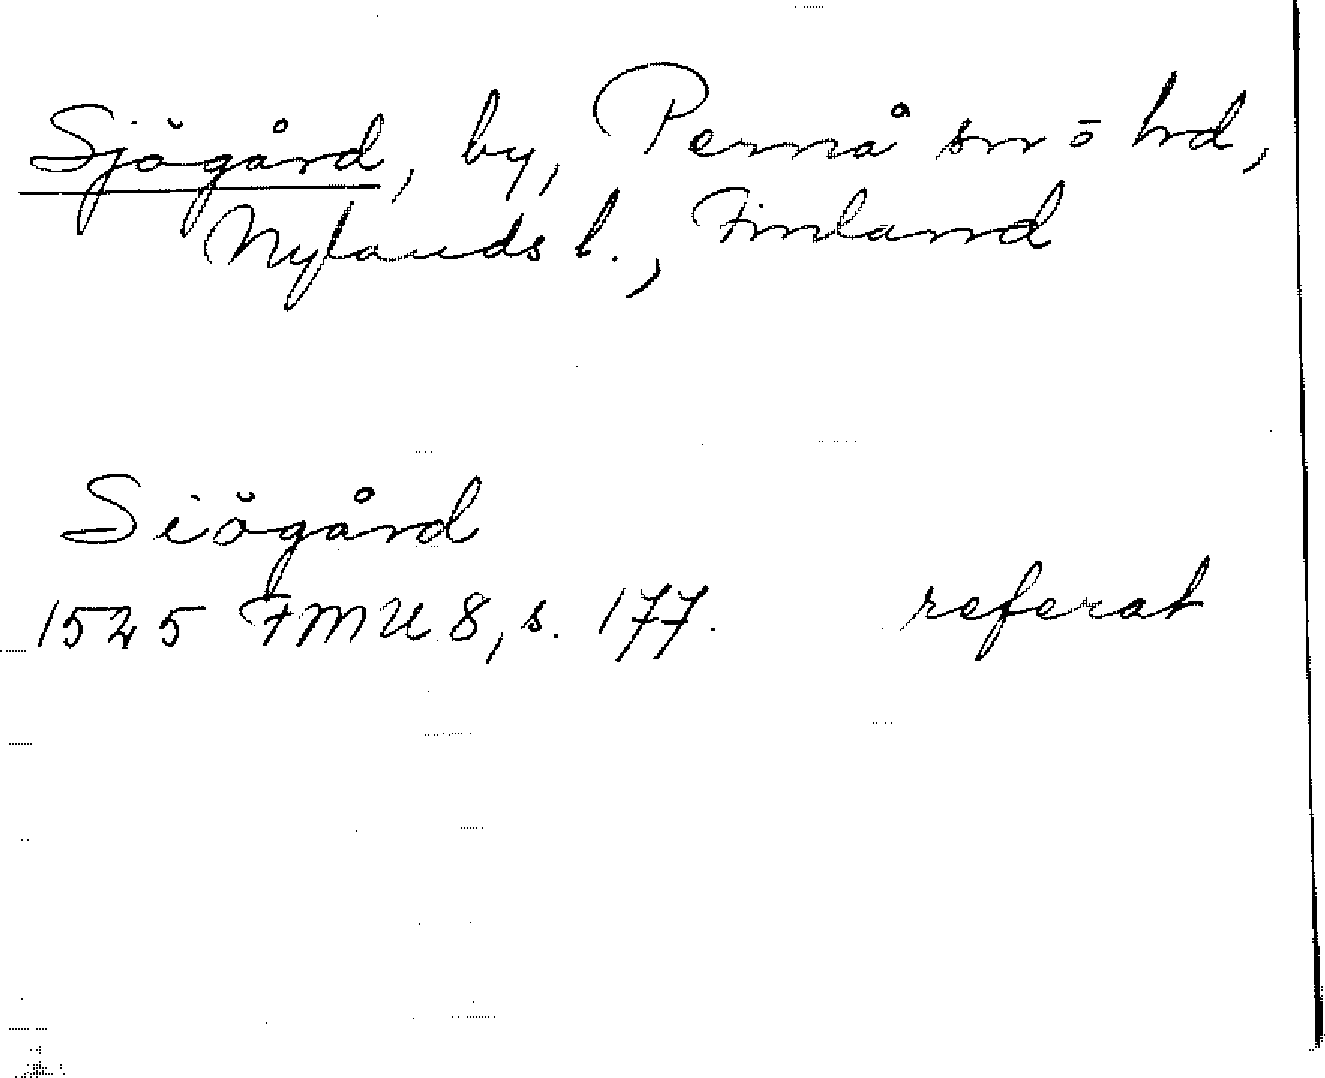 Sjögård, by, Pernå sn o hd,
Nylands l., Finland
Siögård
1525 FMU 8, s. 177. referat